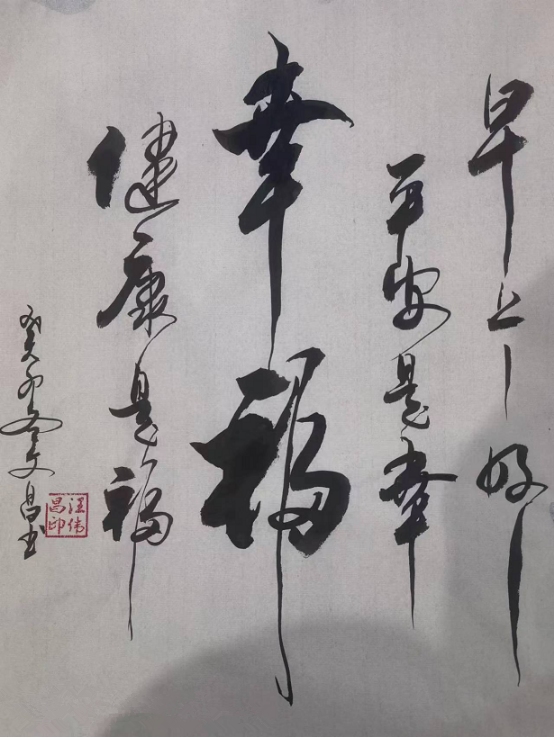 早上好
平安是幸
幸福
健康是福
癸卯冬文昌书
汪伟昌印